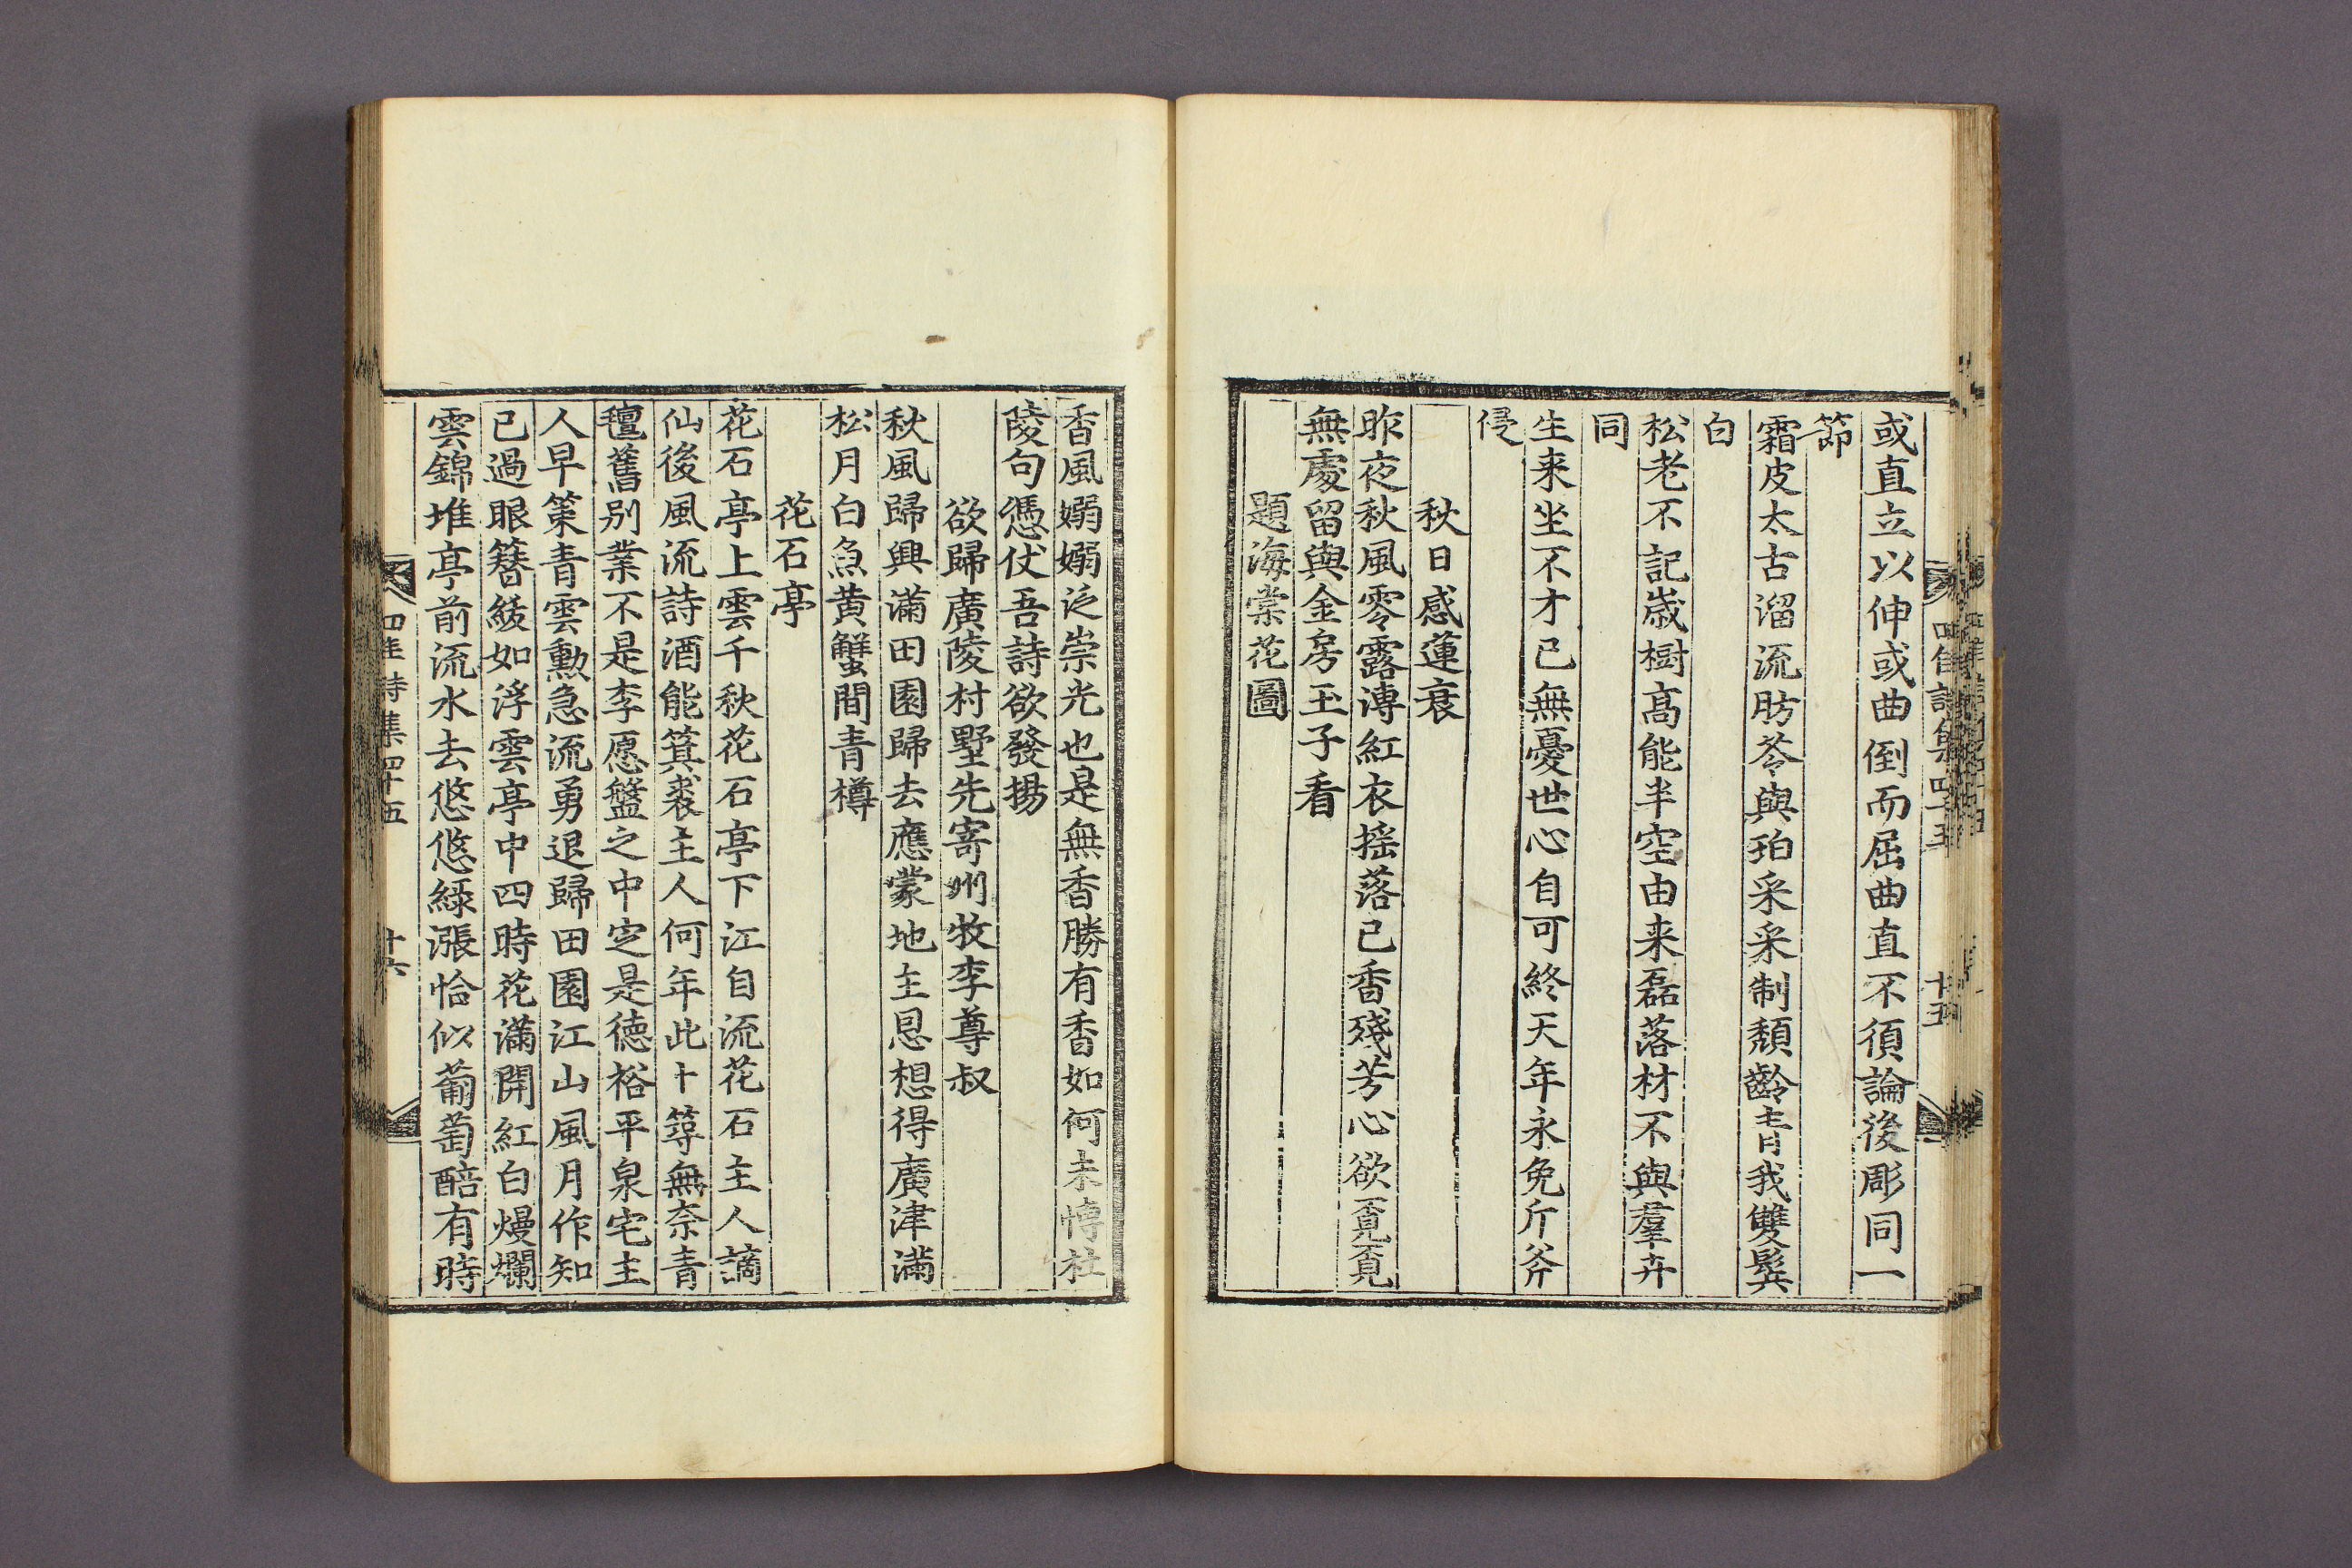 或直立以伸或曲倒而屈曲直不須論後彫同一
節
霜皮太古溜流肪苓與珀采采制頹齡青我雙鬓
白
松老不記歲樹高能半空由来磊落材不與羣卉
同
生来坐不才已無憂世心自可終天年永免斤斧
侵
秋日感蓮衰
昨夜秋風零露漙紅衣揺落已香殘芳心欲覔覔
無處留與金房玉子看
題海棠花圖
香風嫋嫋泛崇光也是無香勝有香如何未慱杜
陵句憑仗吾詩欲發揚
欲歸廣陵村墅先寄州牧李尊叔
秋風歸興滿田園歸去應蒙地主恩想得廣津滿
松月白魚黄蟹間青樽
花石亭
花石亭上雲千秋花石亭下江自流花石主人謫
仙後風流詩酒能箕裘主人何年此卜築無奈青
氊舊别業不是李愿盤之中定是德裕平泉宅主
人早策青雲勳急流勇退歸田園江山風月作知
已過眼簪紱如浮雲亭中四時花滿開紅白熳爛
雲錦堆亭前流水去悠悠綠漲恰似葡萄醅有時
四佳詩集四十五
十六